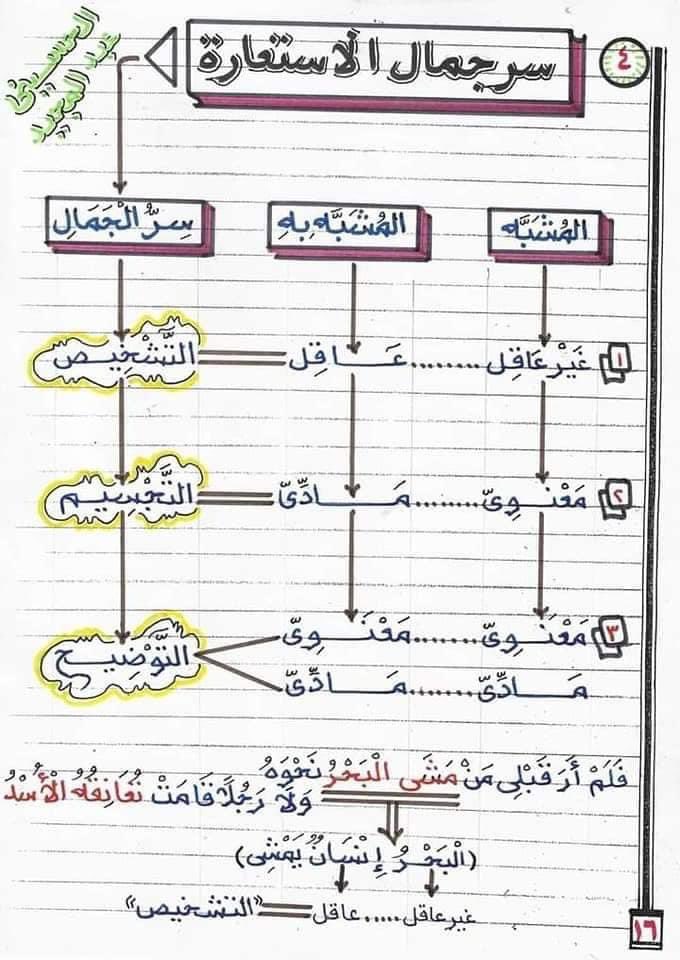 ٤
سر جمال الاستعارة
الحسيني
عبد المجيد
المُشَبَّه المُشَبَّه بِهِ سِرُّ الْجَمَالِ
١ غَيْر عَاقِل ........ عَاقِل التَّشْخِيص
٢ مَعْنَوِىّ ........ مَادِّىّ التَّجْسِيم
٣ مَعْنَوِىّ ........ مَعْنَوِىّ
التَّوْضِيح
مَادِّىّ ........ مَادِّىّ
فَلَمْ أَرَ قَبْلِى مَنْ مَشَى الْبَحْرُ نَحْوَهُ
وَلَا رَجُلًا قَامَتْ تُعَانِقُهُ الْأُسْدُ
(الْبَحْرُ إِنْسَانٌ يَمْشِى)
غير عاقل ..... عاقل "التشخيص"
١٦